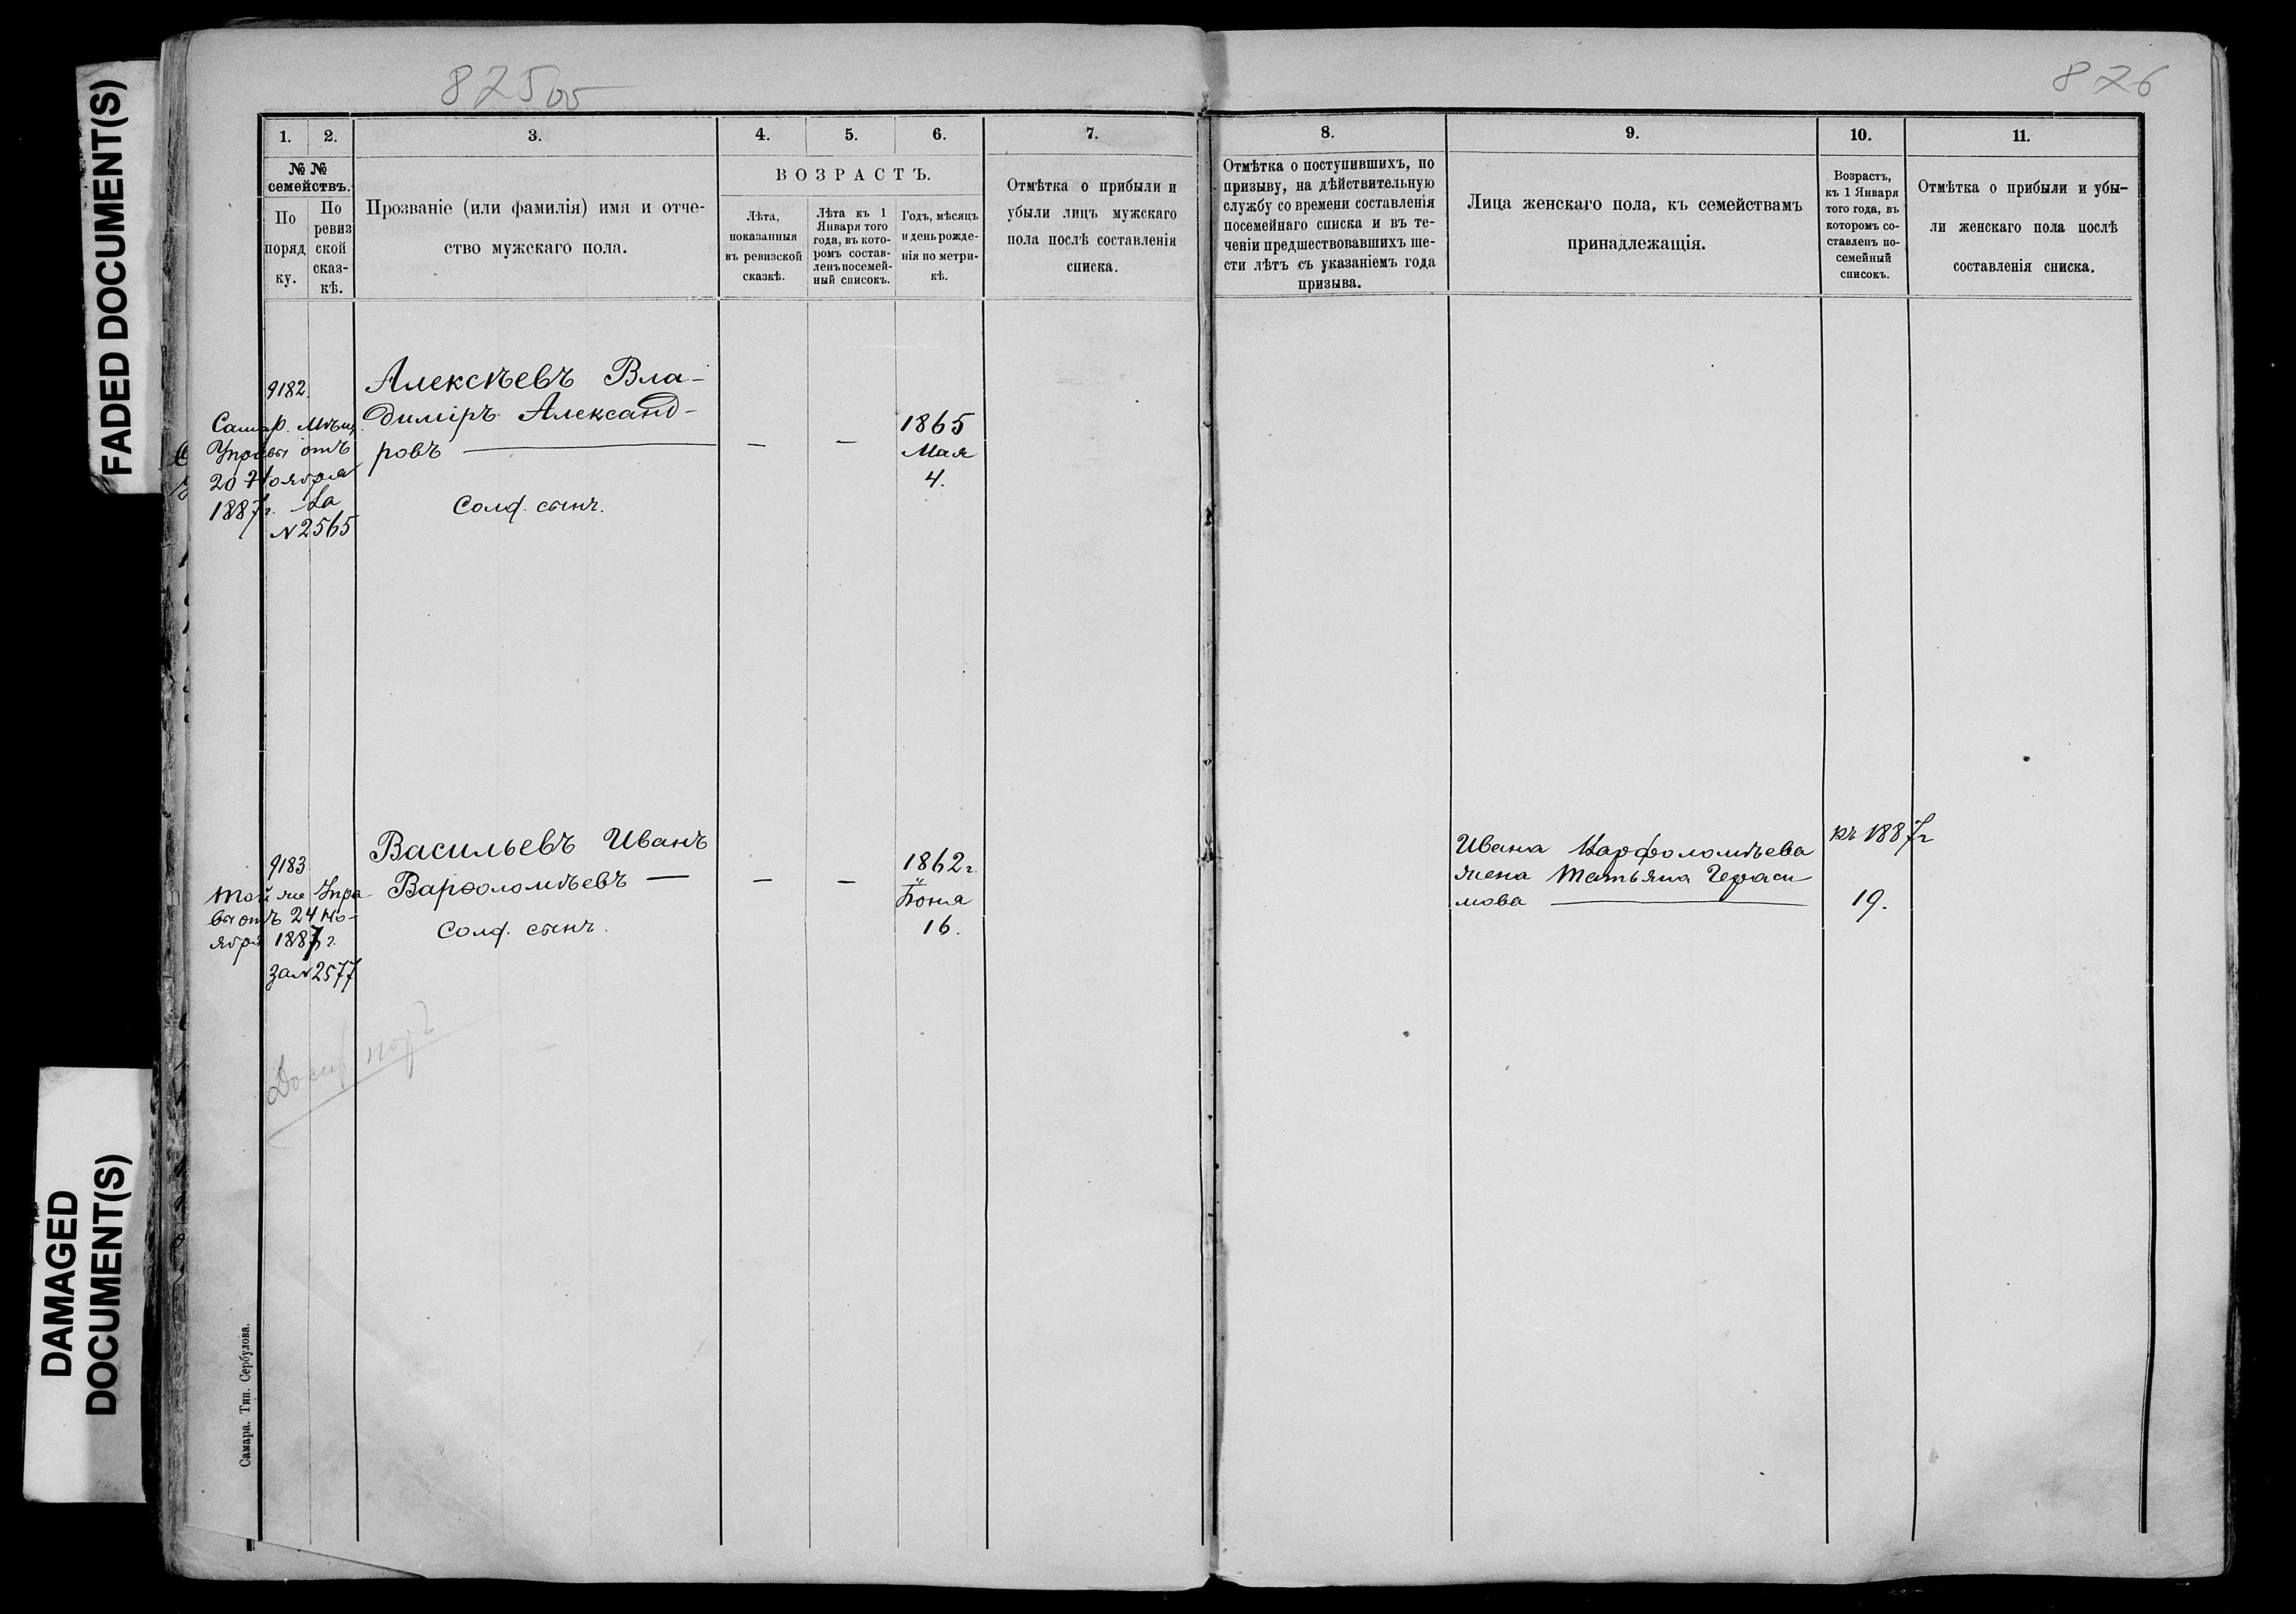 FADED DOCUMENT(S)
DAMAGED
DOCUMENT(S)
825об
876
1.
2.
3.
4.
5.
6.
7.
№ №
семействъ.
По
поряд
ку.
По
ревиз
ской
сказ-
кѣ.
Прозваніе (или фамилія) имя и отче-
ство мужскаго пола.
ВОЗРАСТЪ.
Лѣта,
показанныя
въ ревизской
сказкѣ.
Лѣта къ 1
Января того
года, въ кото-
ромъ состав-
ленъ посемей-
ный списокъ.
Годъ, мѣсяцъ
и день рожде-
нія по метри-
кѣ.
Отмѣтка о прибыли и
убыли лицъ мужскаго
пола послѣ составленія
списка.
8.
9.
10.
11.
Отмѣтка о поступившихъ, по
призыву, на дѣйствительную
службу со времени составленія
посемейнаго списка и въ те-
ченіи предшествовавшихъ ше-
сти лѣтъ съ указаніемъ года
призыва.
Лица женскаго пола, къ семействамъ
принадлежащія.
Возрастъ,
къ 1 Января
того года, въ
которомъ со-
ставленъ по-
семейный
списокъ.
Отмѣтка о прибыли и убы-
ли женскаго пола послѣ
составленія списка.
9182.
Самар. Мѣщ.
Управы отъ
20 Ноября
1887г. За
№ 2565
Алексѣевъ Вла-
диміръ Александ-
ровъ —
Солд. сынъ.
—
—
1865
Мая
4.
9183
Той же Упра
вы отъ 24 Но-
ября 1887 г.
за № 2577
Васильевъ Иванъ
Варѳоломѣевъ —
Солд. сынъ.
—
—
1862 г.
Іюня
16.
Ивана Варфоломѣева
жена Татьяна Гераси
мова —
къ 1887г
19.
Самара. Тип. Сербулова.